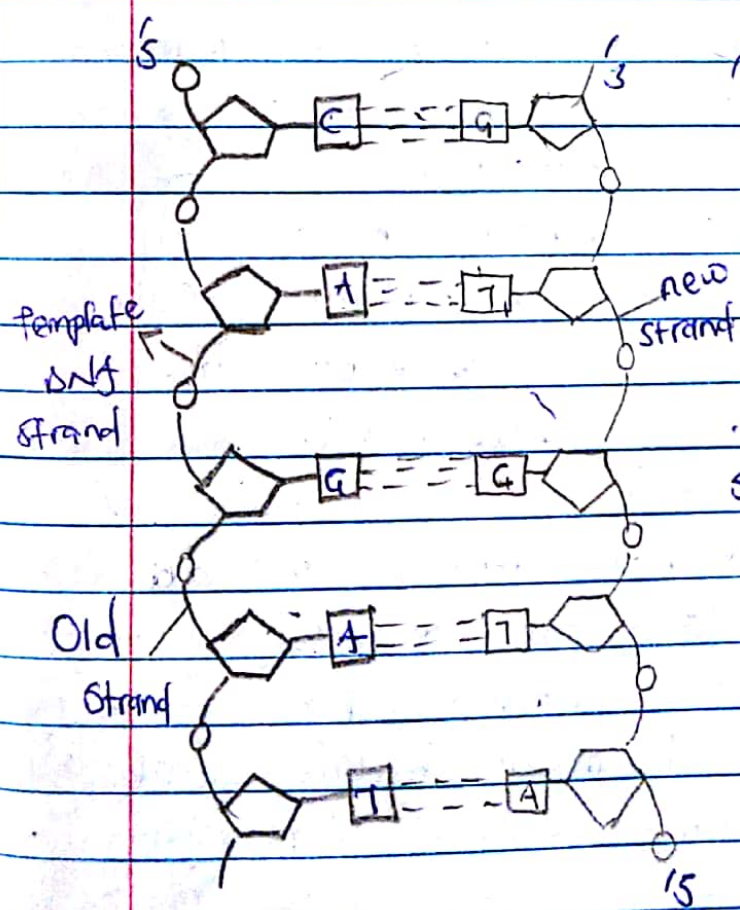 '5
'3
C G
A T
new
strand
Template
DNA
strand
G G
Old
strand
A T
T A
'5